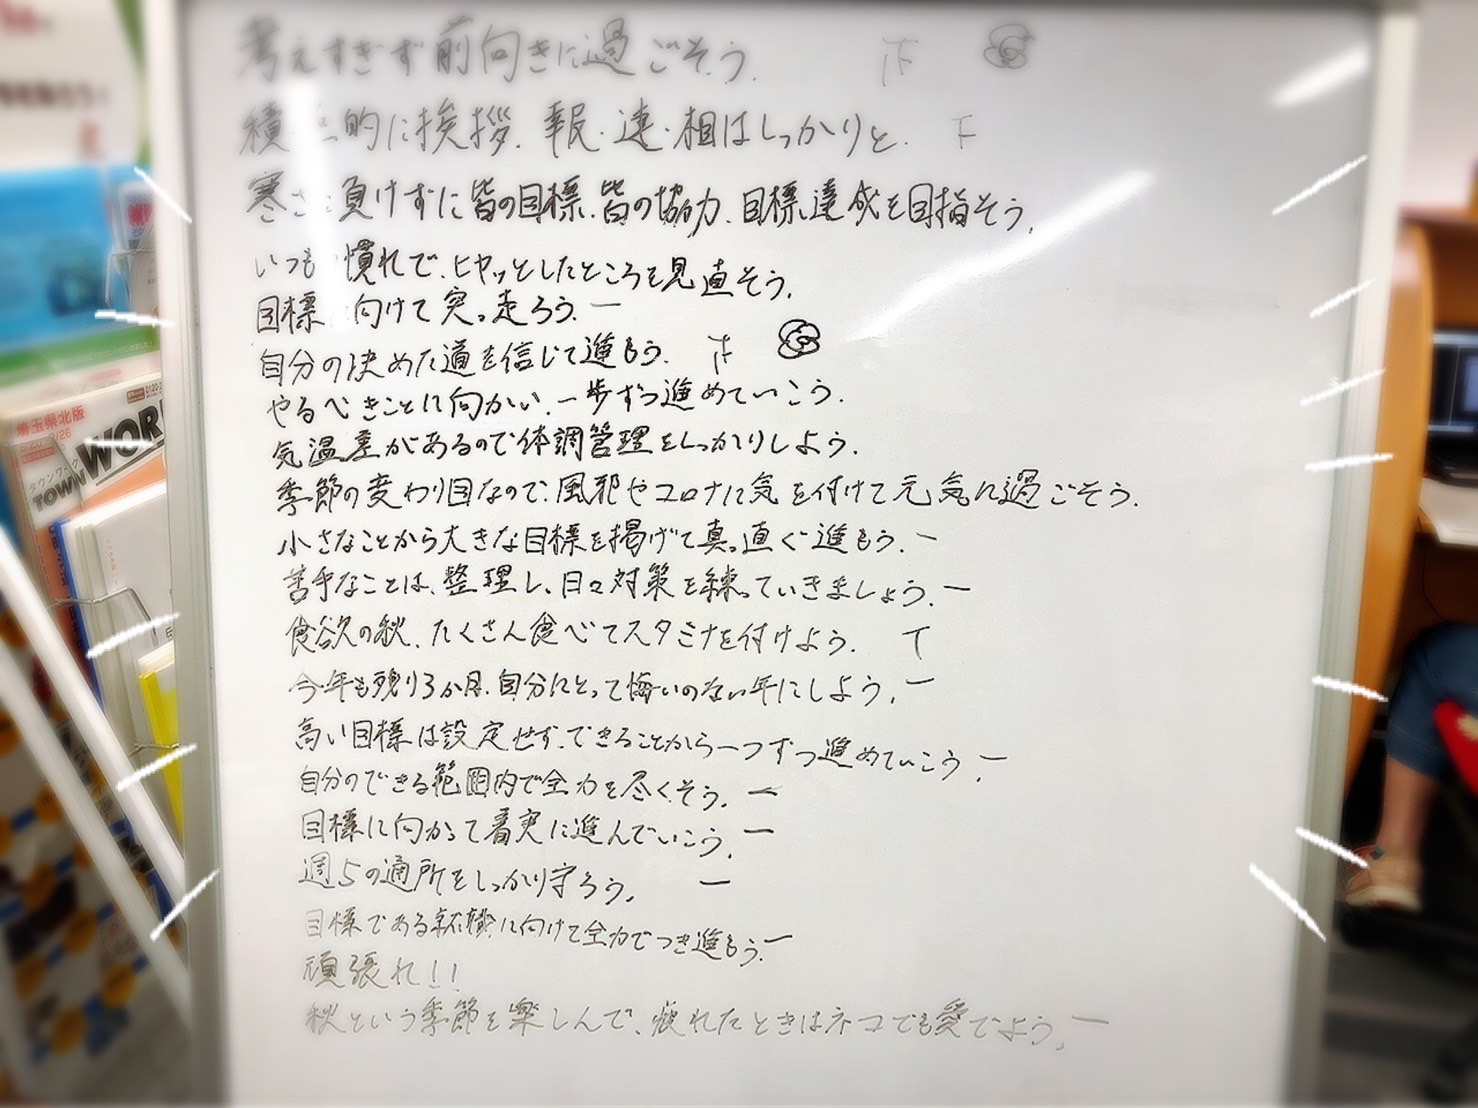 考えすぎず前向きに過ごそう. 下
積極的に挨拶. 報・連・相はしっかりと. 下
寒さに負けずに皆の目標. 皆の協力. 目標達成を目指そう.
いつも 慣れで、ヒヤッとしたところを見直そう.
目標に向けて突っ走ろう. ー
自分の決めた道を信じて進もう. 下
やるべきことに向かい. 一歩ずつ進めていこう.
気温差があるので体調管理をしっかりしよう.
季節の変わり目なので、風邪やコロナに気を付けて元気に過ごそう.
小さなことから大きな目標を掲げて真っ直ぐ進もう. ー
苦手なことは、整理し、日々対策を練っていきましょう. ー
食欲の秋、たくさん食べてスタミナを付けよう. T
今年も残り3か月. 自分にとって悔いのない年にしよう. ー
高い目標は設定せず、できることから一つずつ進めていこう. ー
自分のできる範囲内で全力を尽くそう. ー
目標に向かって着実に進んでいこう. ー
週5の通所をしっかり守ろう. ー
目標である就職に向けて全力でつき進もう. ー
頑張れ!!
秋という季節を楽しんで、疲れたときはネコでも愛でよう. ー
埼玉県北版
タウンワーク
TOWN WOR